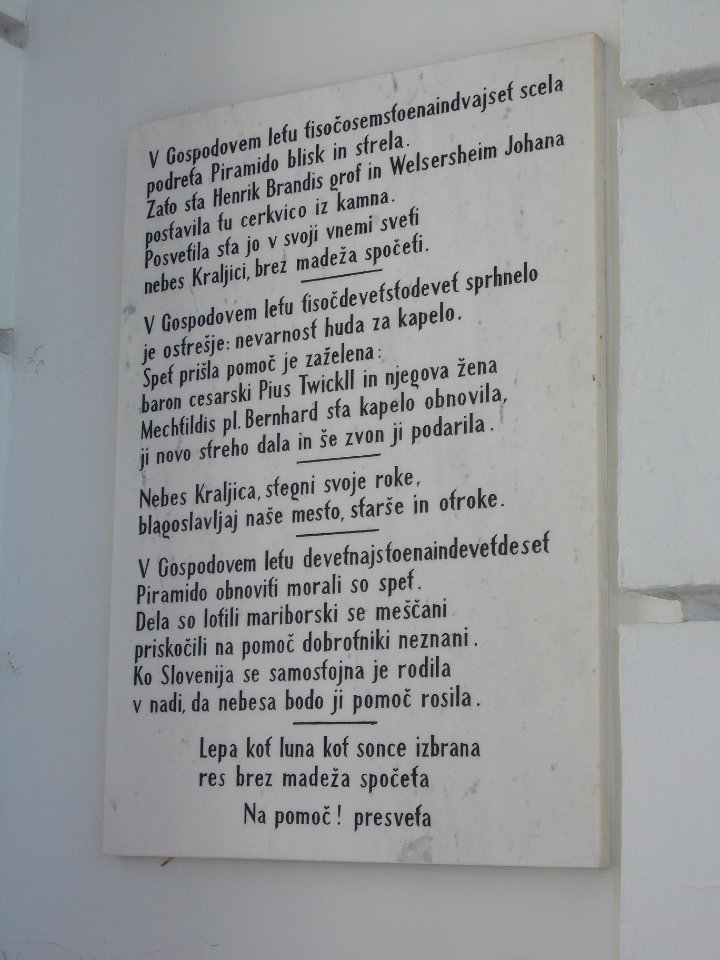 V Gospodovem letu tisočosemstoenaindvajset scela
podreta Piramido blisk in strela.
Zato sta Henrik Brandis grof in Welsersheim Johana
postavila tu cerkvico iz kamna.
Posvetila sta jo v svoji vnemi sveti
nebes Kraljici, brez madeža spočeti.
V Gospodovem letu tisočdevetstodevet sprhnelo
je ostrešje: nevarnost huda za kapelo.
Spet prišla pomoč je zaželena:
baron cesarski Pius Twickll in njegova žena
Mechtildis pl. Bernhard sta kapelo obnovila,
ji novo streho dala in še zvon ji podarila.
Nebes Kraljica, stegni svoje roke,
blagoslavljaj naše mesto, starše in otroke.
V Gospodovem letu devetnajstoenaindevetdeset
Piramido obnoviti morali so spet.
Dela so lotili mariborski se meščani
priskočili na pomoč dobrotniki neznani.
Ko Slovenija se samostojna je rodila
v nadi, da nebesa bodo ji pomoč rosila.
Lepa kot luna kot sonce izbrana
res brez madeža spočeta
Na pomoč! presveta